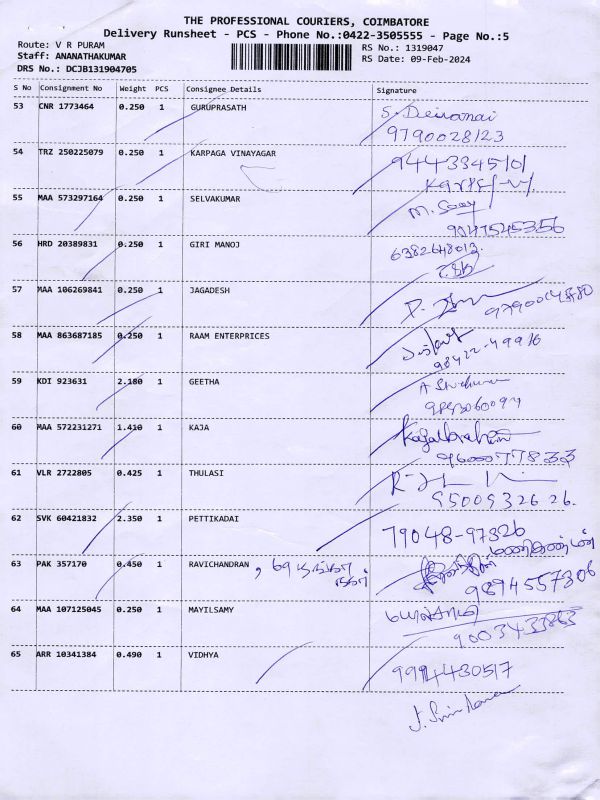 THE PROFESSIONAL COURIERS, COIMBATORE
Delivery Runsheet - PCS - Phone No.:0422-3505555 - Page No.:5
Route: V R PURAM
RS No.: 1319047
Staff: ANANATHAKUMAR
RS Date: 09-Feb-2024
DRS No.: DCJB131904705
S No Consignment No Weight PCS Consignee Details Signature
53 CNR 1773464 0.250 1 GURUPRASATH
9790028123
54 TRZ 250225079 0.250 1 KARPAGA VINAYAGAR
9443345101
55 MAA 573297164 0.250 1 SELVAKUMAR M.
9047545356
56 HRD 20389831 0.250 1 GIRI MANOJ 6382648013.
57 MAA 106269841 0.250 1 JAGADESH
58 MAA 863687185 0.250 1 RAAM ENTERPRICES
98422-49916
59 KDI 923631 2.180 1 GEETHA
60 MAA 572231271 1.410 1 KAJA
9600077833
61 VLR 2722805 0.425 1 THULASI
9500932626.
62 SVK 60421832 2.350 1 PETTIKADAI 79048-97326
63 PAK 357170 0.450 1 RAVICHANDRAN
நகர்
9894557306
64 MAA 107125045 0.250 1 MAYILSAMY
65 ARR 10341384 0.490 1 VIDHYA 9994430517